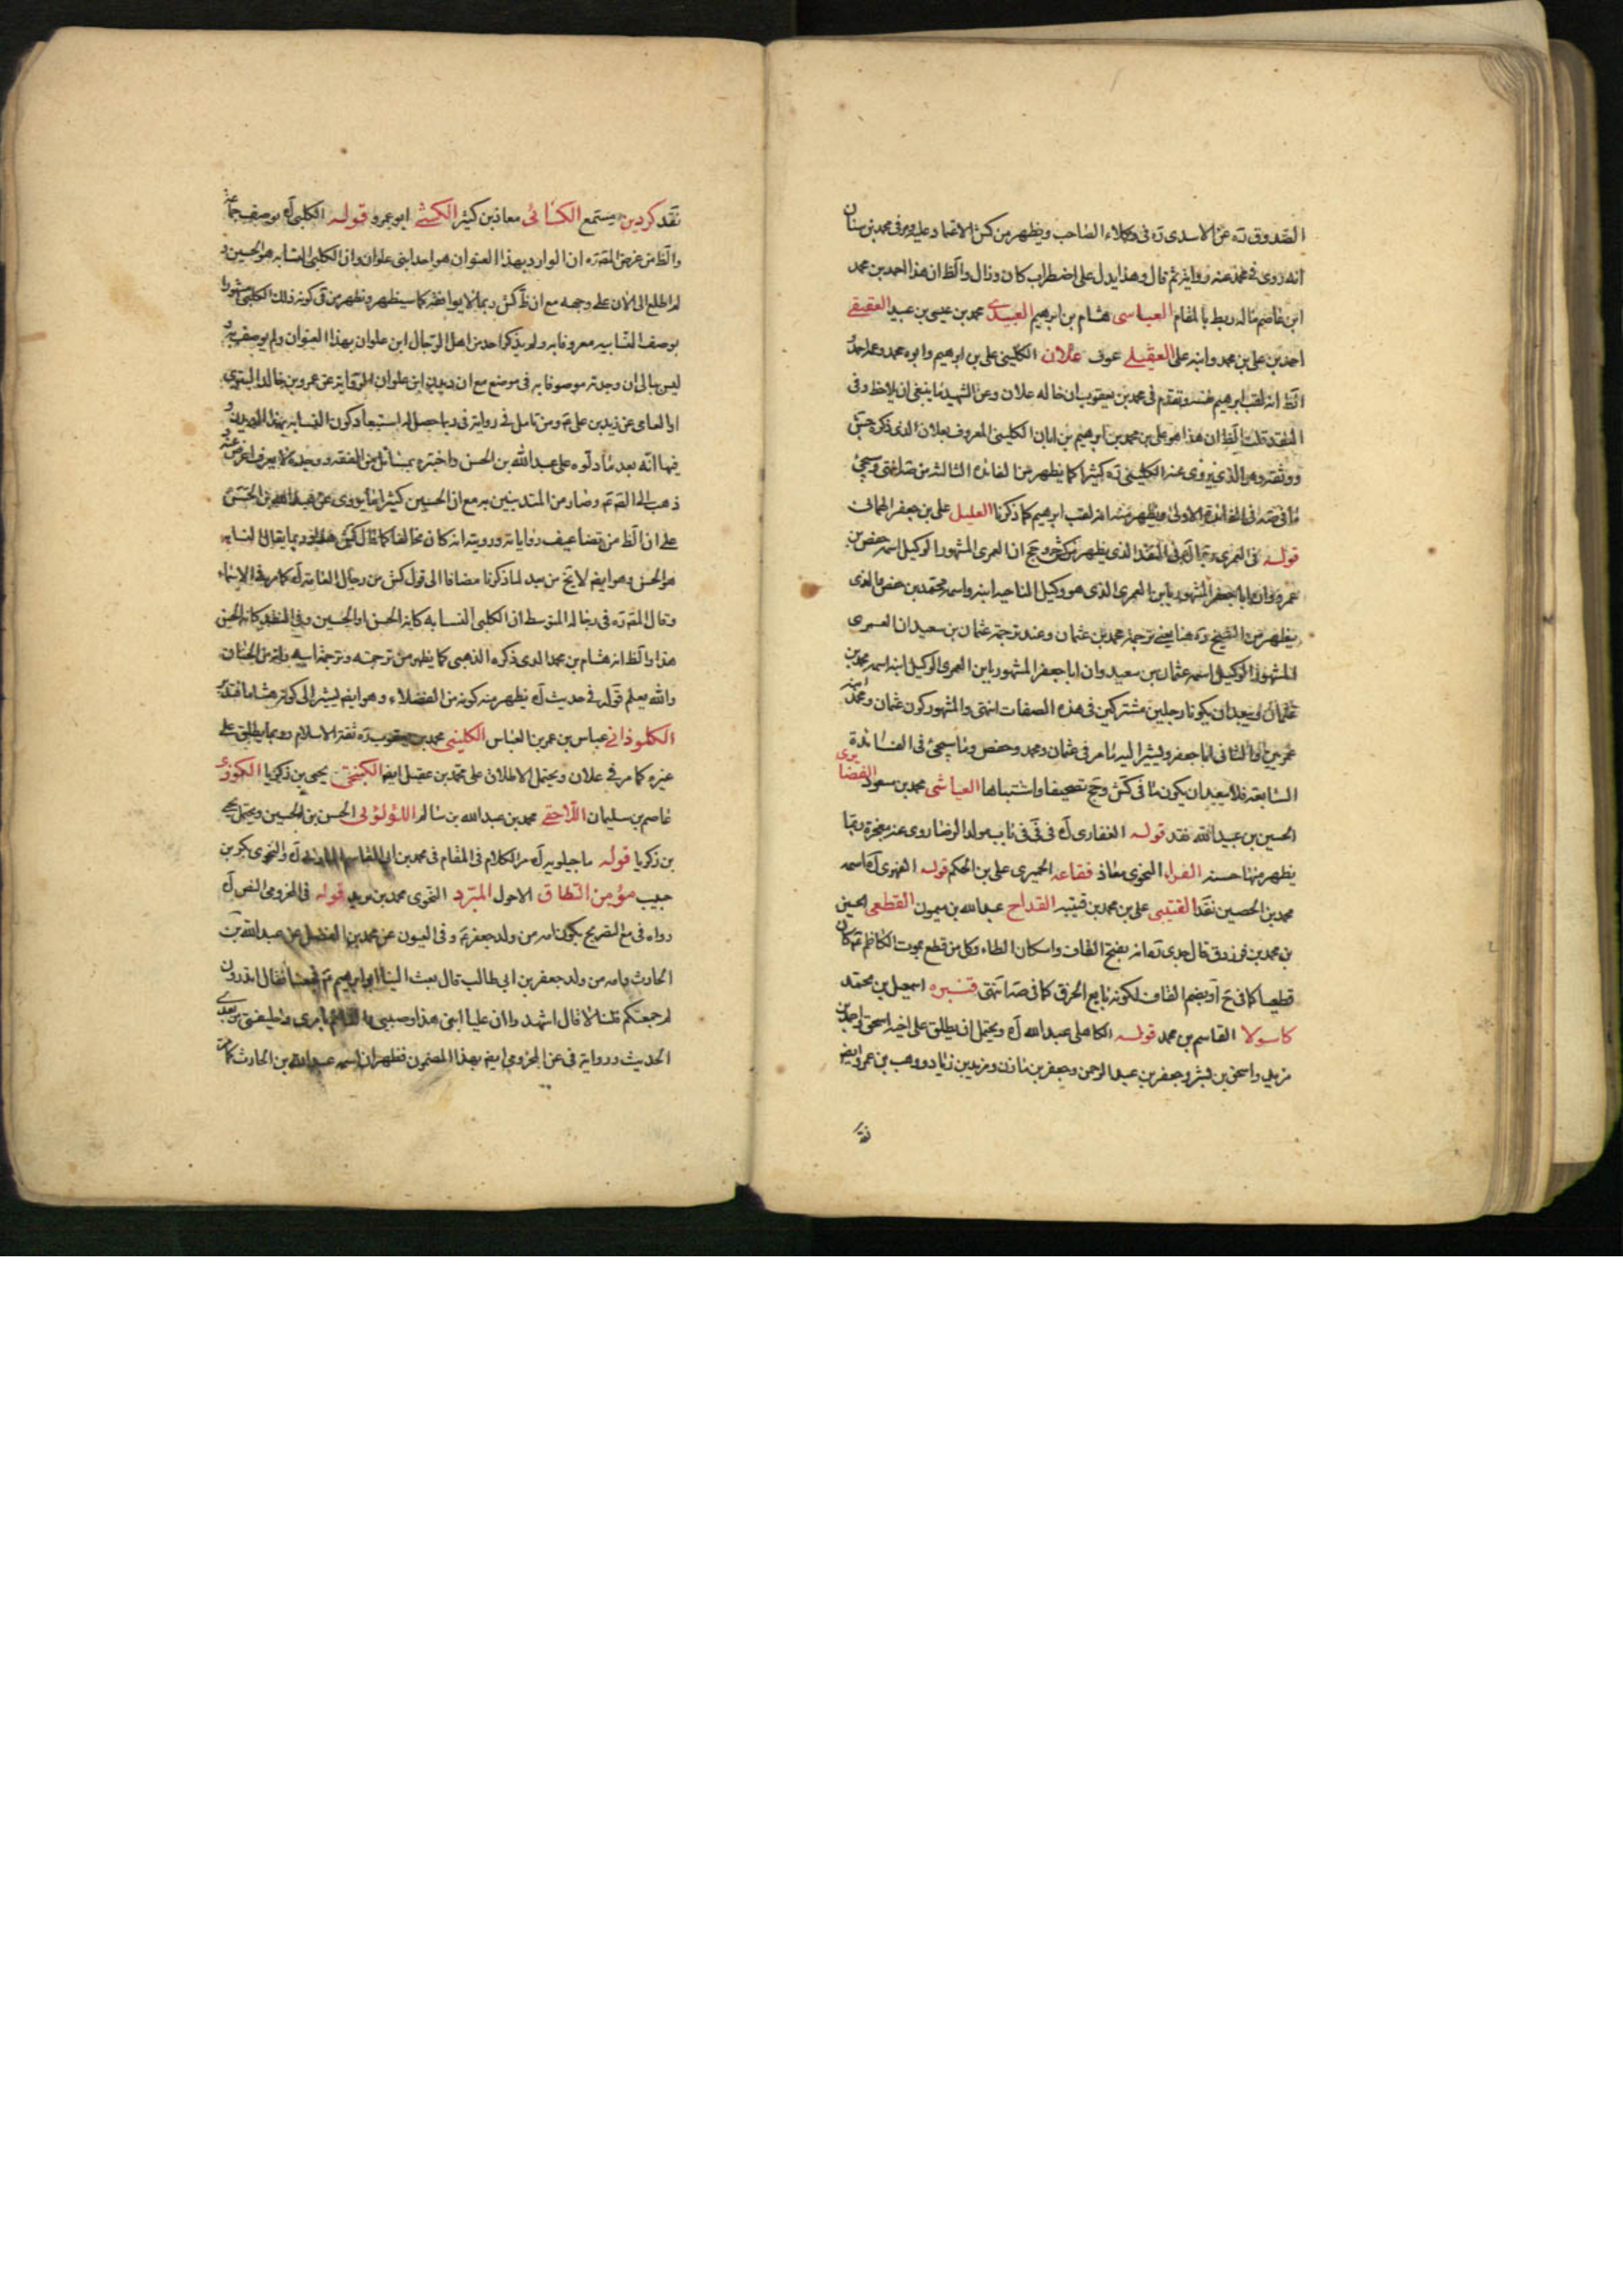 الصدوق ره عن الاسدى ره فى وكلاء الصاحب ويظهر من كش الاعتماد عليه ومر فى محمد بن سنان
انه روى فى محمد عنه رواية ثم قال وهذا يدل على اضطراب كان وزال والظ ان هذا احمد بن محمد
ابن عاصم ماله ربط بالمقام العباسى هشام بن ابرهيم العبيدى محمد بن عيسى بن عبيد العقيقى
احمد بن على بن محمد وابنه على العقيلى عوف علان الكلينى على بن ابرهيم وابوه محمد وعمه احمد
الظ انه لقب ابرهيم نفسه وتقدم فى محمد بن يعقوب ان خاله علان وعن الشهيد ما ينبغى ان يلاحظ وفى
النقد قلت الظ ان هذا هو على بن محمد بن ابرهيم بن ابان الكلينى المعروف بعلان الذى ذكره جش
ووثقه وهو الذى يروى عنه الكلينى ره كثيرا كما يظهر من الفائدة الثالثة من صه انتهى وسيجئ
ما فى صه فى الفائدة الاولى ويظهر منه انه لقب ابرهيم كما ذكرنا العليل على بن جعفر الهمانى
قوله فى العمرى رجال آه فى النقد الذى يظهر من كش وجخ ان العمرى المشهور الوكيل اسمه حفص بن
عمرو وان ابا جعفر المشهور بابن العمرى الذى هو وكيل الناحيه ابنه واسمه محمد بن حفص والذى
يظهر من الشيخ ره هنا يعنى ترجمة محمد بن عثمان وعند ترجمة عثمان بن سعيد ان العمرى
المشهور الوكيل اسمه عثمان بن سعيد وان ابا جعفر المشهور بابن العمرى الوكيل ابنه اسمه محمد بن
عثمان ويبعد ان يكونا رجلين مشتركين فى هذه الصفات انتهى والمشهور كون عثمان ومحمد ابنه
عمريين والثانى ابا جعفر ويشير اليه ما مر فى عثمان ومحمد وحفص وما سيجئ فى الفائدة
السابعة فلا يبعد ان يكون ما فى كش وجخ تصحيفا واشتباها العياشى محمد بن مسعود الفضايرى
الحسين بن عبيد الله نقد قوله الغفارى آه فى فى باب مولد الرضا روى عنه معجزة ربما
يظهر منها حسنه الفراء النحوى معاذ فقاعه الحميرى على بن الحكم قوله الفهوى آه اسمه
محمد بن الحصين نقد القتيبى على بن محمد بن قتيبه القداح عبد الله بن ميمون القطعى الحسين
بن محمد بن فرزدق قال جدى ره انه بفتح القاف واسكان الطاء وكل من قطع بموت الكاظم ع كان
قطعيا كما فى ح او بضم القاف لكونه بايع الخرق كما فى صه انتهى قنبره اسمعيل بن محمد
كاسولا القاسم بن محمد قوله الكاهلى عبد الله آه ويحتمل ان يطلق على اخيه اسحق واحمد بن
مزيد واسحق بن بشر وجعفر بن عبد الرحمن وجعفر بن مازن ومزيد بن زياد ووهب بن عمرو ايضا
نقد
نقد كردين مستمع الكسائى معاذ بن كثير الكشى ابو عمرو قوله الكلبى آه يوصف جماعة
والظ من غرض المقرره ان الوارد بهذا العنوان هو احد ابنى علوان وان الكلبى النسابه هو الحسين و
لم اطلع الى الان على وجهه مع ان ظ كش ربما لا يوافقه كما سيظهر ويظهر من فى كونه ذلك الكلبى مشهورا
بوصف النسابيه معروفا به ولم يذكر احد من اهل الرجال ابن علوان بهذا العنوان ولم يوصف به
ليس ببالى ان وجدته موصوفا به فى موضع مع ان ديدن ابن علوان الرواية عن عمرو بن خالد البترى
او العامى عن زيد بن على ع ومن تامل فى رواية فى ربما حصل له استبعاد كون النسابه هذا
فيها انه بعد ما دلوه على عبد الله بن الحسن واختبره بمسائل من الفقه ووجده لا يعرف اعرض عنه
ذهب الى الصادق ع وصار من المتدينين به مع ان الحسين كثيرا ما يروى عن عبد الله بن الحسن
على ان الظ من تضاعيف رواياته ورويته انه كان مخالفا كما قال كش هذا وربما يقال النسابه
هو الحسن وهو ايضم لا يخ من بعد لما ذكرنا مضافا الى قول كش من رجال العامة آه كما مر فى الاسماء
وقال المقرره فى رجاله المتوسط ان الكلبى النسابه كانه الحسن او الحسين وفى النقد كانه الحسن
هذا والظ انه هشام بن محمد الذى ذكره الذهبى كما يظهر من ترجمته وترجمة ابيه وانه من الحسان
والله يعلم قوله فى حديث آه يظهر منه كونه من الفضلاء وهو ايضم يشير الى كونه هشاما فتدبر
الكلوذانى عباس بن عمر بن العباس الكلينى محمد بن يعقوب ره ثقة الاسلام وربما يطلق على
غيره كما مر فى علان ويحتمل الاطلاق على محمد بن عقيل ايضا الكنجى يحيى بن زكريا الكوزى
عاصم بن سليمان اللاحقى محمد بن عبد الله بن سالم اللؤلؤى الحسن بن الحسين ويحتمل يحيى
بن زكريا قوله ماجيلويه آه مر الكلام فى المقام فى محمد بن ابى القاسم المازنى آه والنحوى بكر بن
حبيب مؤمن الطاق الاحول المبرد النحوى محمد بن يزيد قوله فى المخزومى النص آه
رواه فى مع التصريح بكون امه من ولد جعفر ع وفى العيون عن محمد بن الفضيل عن عبد الله بن
الحارث وامه من ولد جعفر بن ابى طالب قال بعث الينا ابو ابرهيم ع فجمعنا فقال اتدرون
لم جمعتكم قلنا لا قال اشهدوا ان عليا ابنى هذا وصيى والقائم بامرى وخليفتى من بعدى
الحديث ورواية فى عن المخزومى ايضم بهذا المضمون فظهر ان اسمه عبد الله بن الحارث كما فى